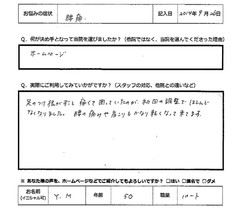 お悩みの症状 腰痛 記入日 2014年9月26日
Q．何が決め手となって当院を選びましたか？（他院ではなく、当院を選んでくださった理由）
ホームページ
Q．実際にご利用してみていかがですか？（スタッフの対応、他院との違いなど）
足のつけ根が特に痛くて困っていたが、初回の調整でほとんど
なくなりました。腰の痛みや肩こりもかなり軽くなって来てます。
※ あなた様の声を、ホームページなどでご紹介してもよろしいですか？ □はい □匿名で □ダメ
お名前 Y.M 年齢 50 職業 パート
(イニシャル可)